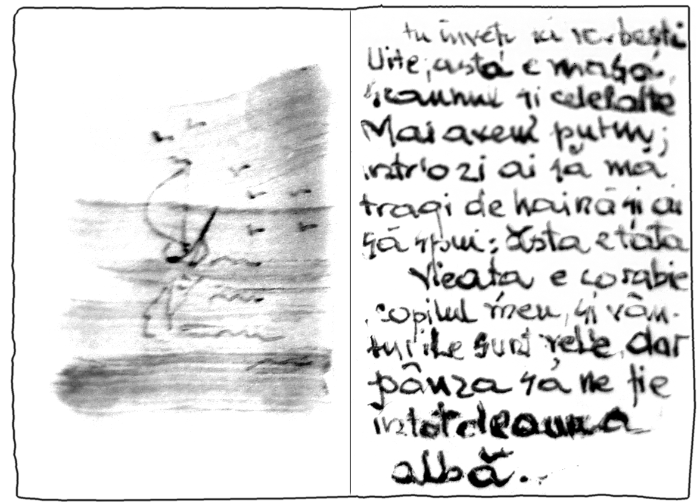 tu înveți să vorbești
Uite, asta e masa,
scaunul și celelalte
Mai avem puțin;
într'o zi ai să mă
tragi de haină și ai
să spui: ăsta e tata
Vieața e corabie
copilul meu, și vân-
turile sunt rele, dar
pânza să ne fie
întotdeauna
albă..